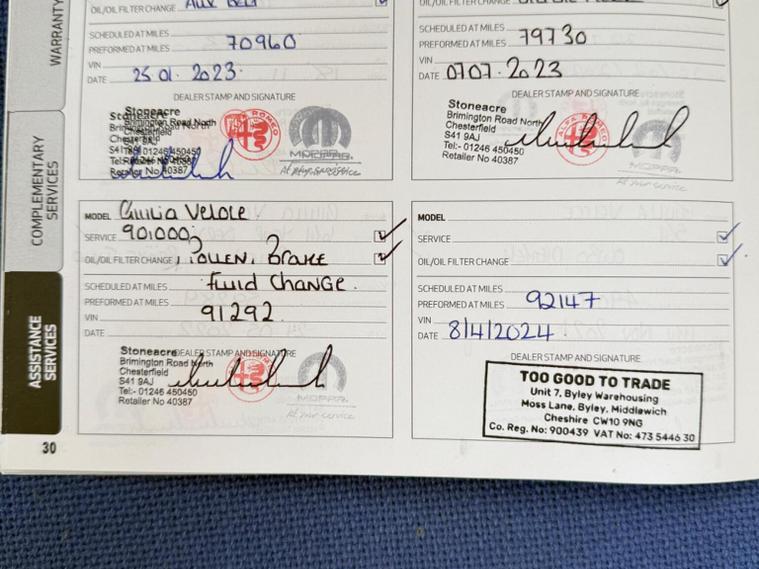 WARRANTY
COMPLEMENTARY
SERVICES
ASSISTANCE
SERVICES
OIL/OIL FILTER CHANGE AUX BELT
SCHEDULED AT MILES
PREFORMED AT MILES 70960
VIN
DATE 25.01.2023.
DEALER STAMP AND SIGNATURE
Stoneacre
Brimington Road North
Chesterfield
S41 9AJ
Tel:- 01246 450450
Retailer No 40387
ALFA ROMEO
MOPAR
At your service
OIL/OIL FILTER CHANGE
SCHEDULED AT MILES
PREFORMED AT MILES 79730
VIN
DATE 07 07. 2023
DEALER STAMP AND SIGNATURE
Stoneacre
Brimington Road North
Chesterfield
S41 9AJ
Tel:- 01246 450450
Retailer No 40387
ALFA ROMEO
MOPAR
At your service
MODEL Giulia Veloce.
SERVICE 901000;
OIL/OIL FILTER CHANGE, POLLEN, BRAKE
SCHEDULED AT MILES Fluid CHANGE.
PREFORMED AT MILES
VIN 91292.
DATE
DEALER STAMP AND SIGNATURE
Stoneacre
Brimington Road North
Chesterfield
S41 9AJ
Tel:- 01246 450450
Retailer No 40387
MOPAR
At your service
MODEL
SERVICE
OIL/OIL FILTER CHANGE
SCHEDULED AT MILES
PREFORMED AT MILES 92147
VIN
DATE 8/4/2024.
DEALER STAMP AND SIGNATURE
TOO GOOD TO TRADE
Unit 7, Byley Warehousing
Moss Lane, Byley, Middlewich
Cheshire CW10 9NG
Co. Reg. No: 900439 VAT No: 473 5446 30
30